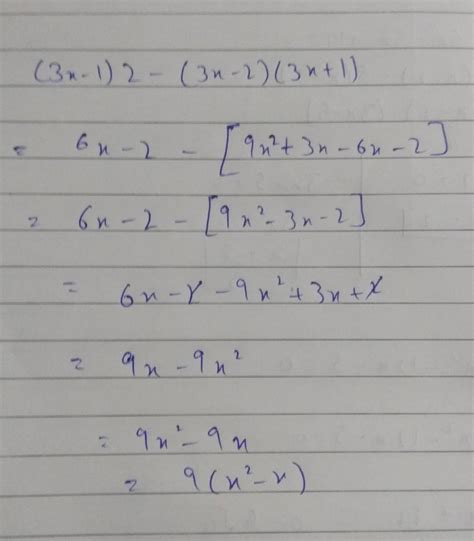 (3x-1)2 - (3x-2)(3x+1)
= 6x-2 - [9x²+3x-6x-2]
= 6x-2-[9x²-3x-2]
= 6x-2-9x²+3x+2
= 9x-9x²
= 9x²-9x
= 9(x²-x)